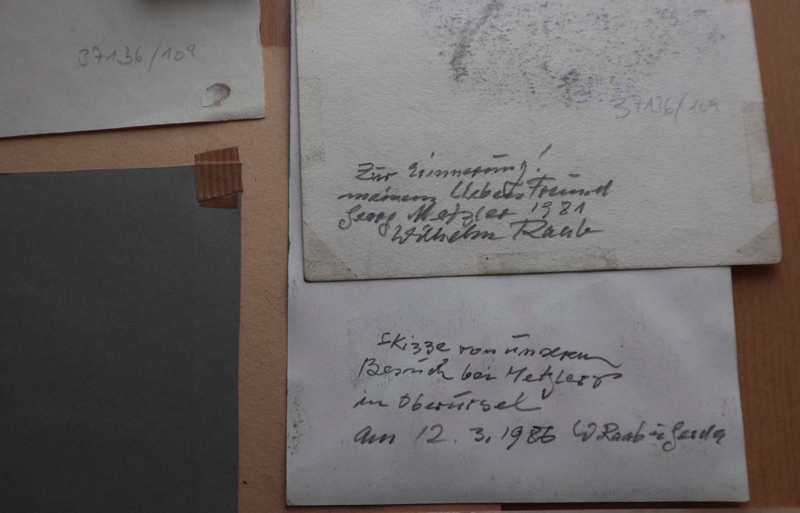 37136/109
37136/109
Zur Erinnerung!
meinem lieben Freund
Georg Metzler 1981
Wilhelm Raab
Skizze von unserem
Besuch bei Metzlers
in Oberursel
am 12.3.1986 W Raab u Gerda